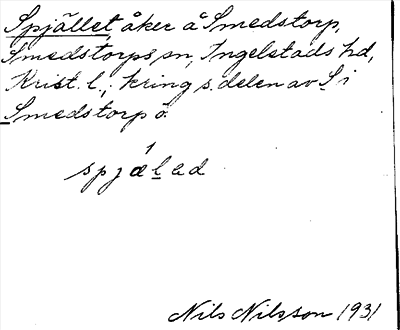 Spjället åker å Smedstorp,
Smedstorps sn, Ingelstads hd,
Krist. l., kring s. delen av S i
Smedstorp ö.
spjælad
Nils Nilsson 1931